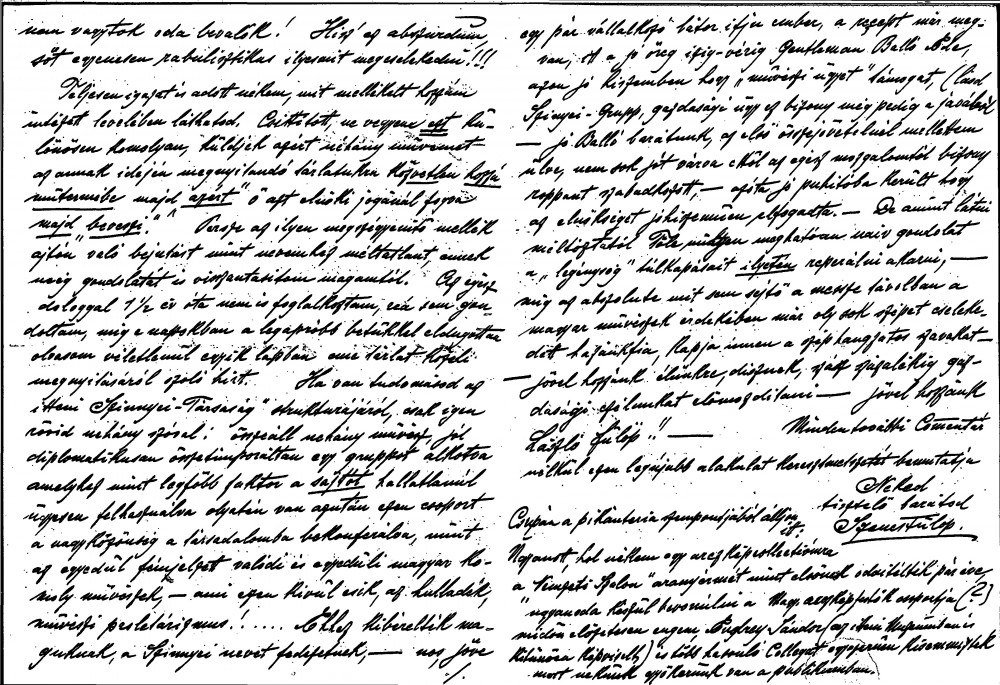 nem vagytok oda bevalók! Hisz ez abszurdum
sőt egyenesen rabulisztikus ilyesmit megcselekedni!!!
Teljesen igazat is adott nekem, mit mellékelt hozzám
intézett levelében láthatod. Csitított, ne vegyem ezt kü-
lönösen komolyan, küldjek azért néhány művemet
az annak idején megnyitandó tárlatukra közvetlen hozzá
műtermébe majd azért" ő azt elnöki jogánál fogva
majd beveszi." Persze az ilyen megszégyenítő mellék
ajtón való bejutást mint nevemhez méltatlant, ennek
még gondolatát is visszautasítom magamtól. Az egész
dologgal 1 1/2 év óta nem is foglalkoztam, reá sem gon
doltam, míg e napokban a legapróbb betűkkel eldugottan
olvasom véletlenül egyik lapban eme tárlat közeli
megnyitásáról szóló hírt. Ha van tudomásod az
itteni Szinnyei-Társaság" strukturájáról, csak igen
rövid néhány szóval: összeáll néhány művész, jól
diplomatikusan összetömörültan egy gruppot alkotva
amelyhez mint legfőbb faktor a sajtót hallatlanúl
ügyesen felhasználva olyatén van azután ezen csoport
a nagyközönség a társadalomba bekonferálva, mint
az egyedül fémjelzett valódi és egyedüli magyar ko-
moly művészek, — ami ezen kívül esik, az hulladék,
művészi proletárizmus...... Ehhez kibérelték ma-
guknak, a Szinnyei nevet fedezetnek, — nos, jöve
./.
egy pár vállalkozó bátor ifju ember, a recept már meg-
van, itt a jó öreg ízig-vérig Gentleman Balló Ede,
azon jó hiszemben hogy „művészi ügyet" támogat, (lásd
Szinyei-Grupp, gazdasági ügy ez bizony még pedig a javából
— jó Balló barátunk, az első összejövetelnél mellettem
ülve, nem sok jót várva ettől az egész mozgalomtól bizony
roppant szabadkozott, — azóta jó puhítóba került hogy
az elnökséget jóhiszeműen elfogadta. — De amint látni
méltóztatol Tőle, milyen meghatóan naiv gondolat
a „legénység" túlkapásait ilyetén reperálni akarni, —
míg az abszolute mit sem sejtő a messze távolban a
magyar művészek érdekében már oly sok szépet cseleke-
dett hazánkfia, kapja innen a széphangzatos szavakat —
— jövel hozzánk élünkre, dísznek, száz százalékig gaz-
dasági céljunkat előmozdítani — jövel hozzánk
László Fülöp!! — Minden további Comentár
nélkül ezen legújabb alakulat keresztmetszetét bemutatja
Neked
tisztelő barátod
Szenes Fülöp.
Csupán a pikanteria szempontjából álljon
itt.
Ugyanott, hol nékem egy arczképcollectiómra
a „Nemzeti Szalon" aranyérmét mint elsőnek odaítélték pár éve,
ugyanoda készül bevonulni a Magy. arczképfestők csoportja (?)
midőn előzetesen engem, Pudrey Sándor (az itteni Muzeumban is
kitűnően képviselt) és több hasonló Collegát egyszerűen kisemmiztek
mert nekünk gyökerünk van a publikumban.